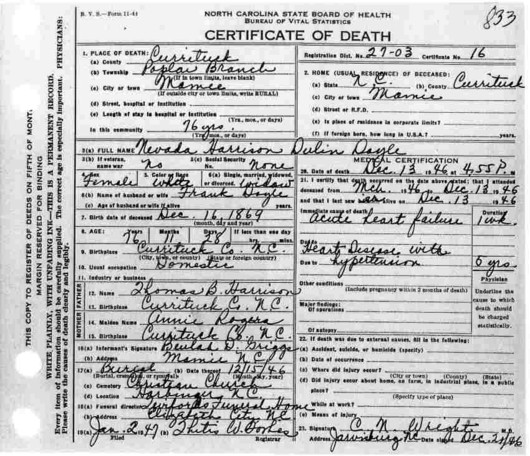 B. V. S.—Form 11-44
NORTH CAROLINA STATE BOARD OF HEALTH
BUREAU OF VITAL STATISTICS
833
CERTIFICATE OF DEATH
Registration Dist. No. 27-03 Certificate No. 16
1. PLACE OF DEATH:
(a) County Currituck
(b) Township Poplar Branch
(If in town limits, leave blank)
(c) City or town Mamie
(If outside city or town limits, write RURAL)
(d) Street, hospital or institution
(e) Length of stay in hospital or institution
(Yrs., mos., or days)
In this community 76 yrs.
(Yrs., mos., or days)
2. HOME (USUAL RESIDENCE) OF DECEASED:
(a) State N.C. (b) County Currituck
(c) City or town Mamie
(d) Street or R.F.D.
(e) Is place of residence in corporate limits?
(f) If foreign born, how long in U.S.A.? years.
3(a) FULL NAME Nevada Harrison Dulin Doyle
3(b) If veteran, name war no
3(c) Social Security No. None
4. Sex Female
5. Color or Race white
6(a) Single, married, widowed, or divorced. Widow
6(b) Name of husband or wife Frank Doyle
6(c) Age of husband or wife if alive years.
7. Birth date of deceased Dec. 16, 1869
(month, day and year)
8. AGE: Years 76 Months 11 Days 28 If less than one day hrs. min.
9. Birthplace Currituck Co. N.C.
(City, town, or county) (State or foreign country)
10. Usual occupation Domestic
11. Industry or business
FATHER
12. Name Thomas B. Harrison
13. Birthplace Currituck Co. N.C.
MOTHER
14. Maiden Name Annie Rogers
15. Birthplace Currituck Co. N.C.
16(a) Informant's Signature Beulah D. Briggs
(b) Address Mamie N.C.
17(a) Burial (b) Date thereof 12/15/46
(Burial, cremation, or removal) (month) (day) (year)
(c) Cemetery Christian Church
(d) Location Harbinger N.C.
18(a) Funeral director Twiford's Funeral Home
(b) address Elizabeth City, N.C.
19(a) Jan. 2 1947
Filed Registrar
MEDICAL CERTIFICATION
20. Date of death Dec. 13 1946, 4:55 P.M.
21. I certify that death occurred on the date above stated; that I attended
deceased from Mch. 1946 to Dec. 13 1946
and that I last saw alive on Dec. 13 1946
Immediate cause of death Duration
Acute heart failure 1 wk
Due to
Heart Disease with
Due to Hypertension 6 yrs.
Other conditions
(Include pregnancy within 3 months of death)
Major findings:
Of operations
Of autopsy
Physician
Underline the cause to which death should be charged statistically.
22. If death was due to external causes, fill in the following:
(a) Accident, suicide, or homicide (specify)
(b) Date of occurrence
(c) Where did injury occur?
(City or town) (County) (State)
(d) Did injury occur about home, on farm, in industrial place, in a public place?
(Specify type of place)
While at work?
(e) Means of injury
23. Signature C. N. Wright
Address Jarvisburg N.C. Date signed Dec. 20/46
THIS COPY TO REGISTER OF DEEDS ON FIFTH OF MONTH.
MARGIN RESERVED FOR BINDING
WRITE PLAINLY, WITH UNFADING INK—THIS IS A PERMANENT RECORD.
Every item of information should be carefully supplied. The correct age is especially important. PHYSICIANS:
Please write the causes of death clearly and legibly.